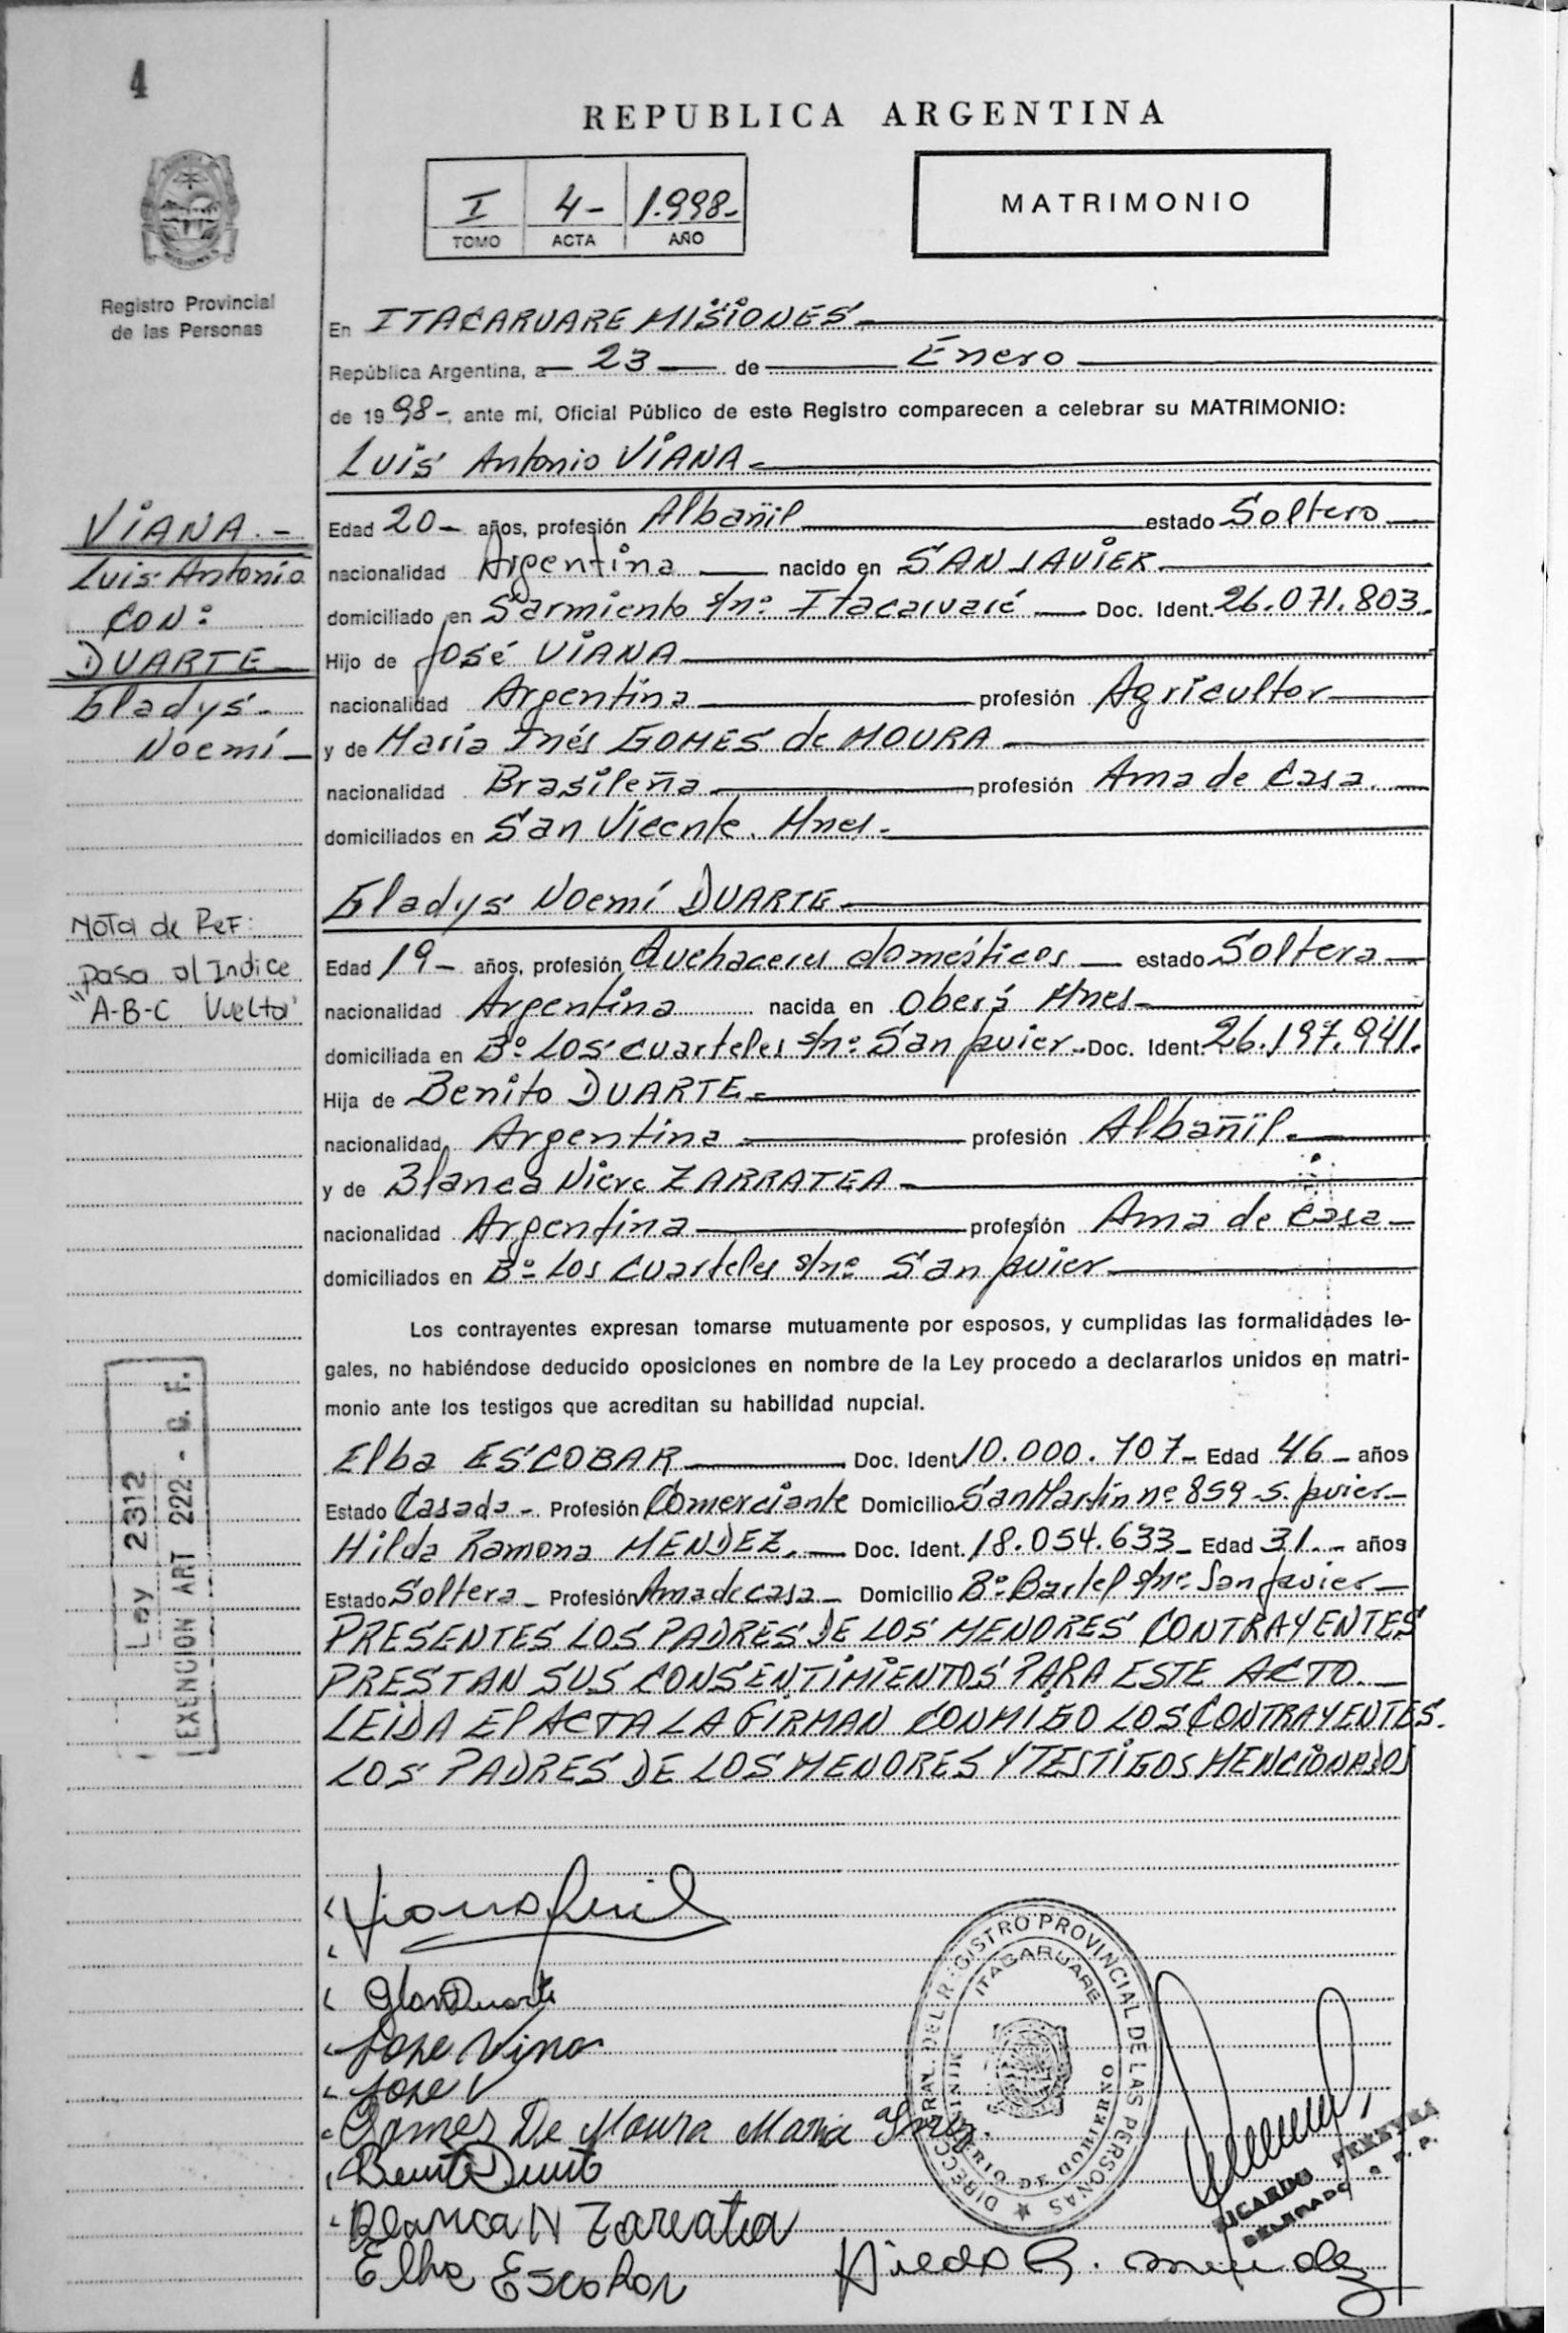 4
REPUBLICA ARGENTINA
I 4- 1.998-
TOMO ACTA AÑO
MATRIMONIO
MISIONES
Registro Provincial
de las Personas
En ITACARUARE MISIONES
República Argentina, a 23 de Enero
de 1998-, ante mí, Oficial Público de este Registro comparecen a celebrar su MATRIMONIO:
Luis Antonio VIANA
VIANA.-
Luis Antonio
CON:
DUARTE
Gladys
Noemí
Edad 20- años, profesión Albañil estado Soltero
nacionalidad Argentina nacido en SAN JAVIER
domiciliado en Sarmiento s/nº Itacaruaré Doc. Ident. 26.071.803.
Hijo de José VIANA
nacionalidad Argentina profesión Agricultor
y de María Inés GOMES de MOURA
nacionalidad Brasileña profesión Ama de Casa.
domiciliados en San Vicente. Mnes.
Gladys Noemí DUARTE
Nota de Ref:
Pasa al Indice
"A-B-C Vuelta"
Edad 19- años, profesión Quehaceres domésticos estado Soltera
nacionalidad Argentina nacida en Oberá Mnes
domiciliada en Bº Los cuarteles s/nº San Javier Doc. Ident. 26.197.941.
Hija de Benito DUARTE
nacionalidad Argentina profesión Albañil.
y de Blanca Nieve ZARRATEA
nacionalidad Argentina profesión Ama de Casa
domiciliados en Bº Los Cuarteles s/nº San Javier
Los contrayentes expresan tomarse mutuamente por esposos, y cumplidas las formalidades le-
gales, no habiéndose deducido oposiciones en nombre de la Ley procedo a declararlos unidos en matri-
monio ante los testigos que acreditan su habilidad nupcial.
Ley 2312
EXENCION ART 222 - C. F.
Elba ESCOBAR Doc. Ident 10.000.707- Edad 46- años
Estado Casada- Profesión Comerciante Domicilio San Martin nº 859 S. Javier
Hilda Ramona MENDEZ. Doc. Ident. 18.054.633- Edad 31.- años
Estado Soltera- Profesión Ama de casa Domicilio Bº Bartel s/nº San Javier
PRESENTES LOS PADRES DE LOS MENORES CONTRAYENTES
PRESTAN SUS CONSENTIMIENTOS PARA ESTE ACTO.
LEIDA El ACTA LA FIRMAN CONMIGO LOS CONTRAYENTES.
LOS PADRES DE LOS MENORES Y TESTIGOS MENCIONADOS
Viana Luis
Duarte
Jose Vina
Jose V
Gomes De Moura Maria Ines
Benito Duarte
Blanca N Zarratea
Elba Escobar
Hilda R. Mendez
DIRECC. GRAL. DEL REGISTRO PROVINCIAL DE LAS PERSONAS
ITACARUARE
MINISTERIO DE GOBIERNO
RICARDO PEREYRA
DELEGADO R. P. P.